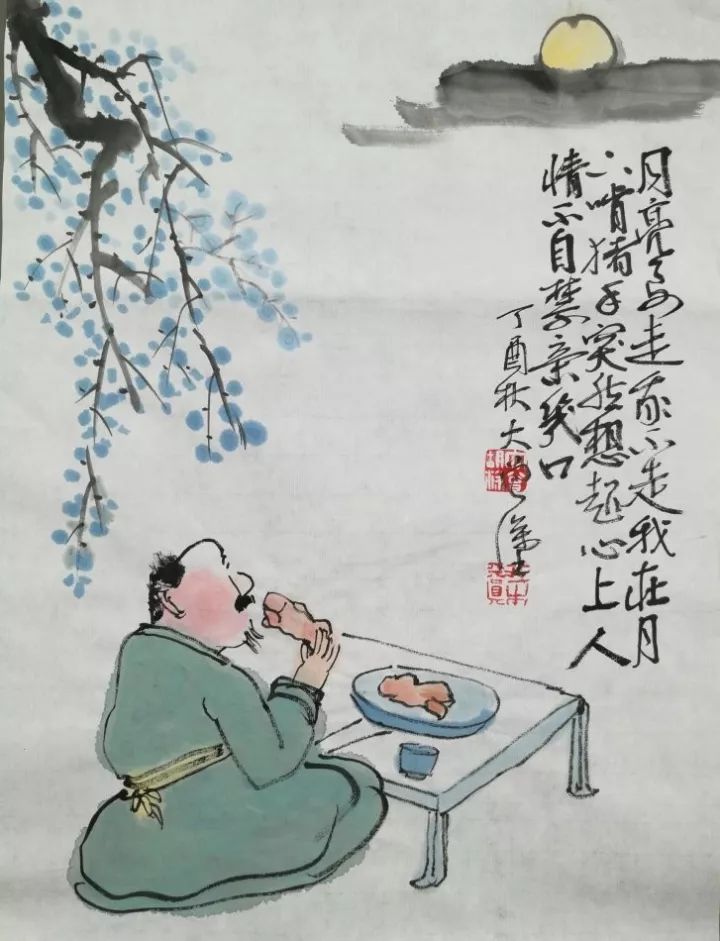 月亮走我不走我在月
下啃猪手突然想起心上人
情不自禁亲幾口
丁酉秋大